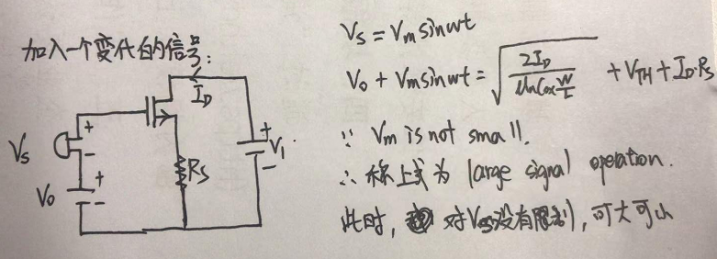 加入一个变化的信号:
I_D
V_s
V_0
R_S
V_1
+
-
+
-
+
-
V_s = V_m sinwt
V_0 + V_m sinwt = √(2I_D / (UnCox W/L)) + V_TH + I_D·R_S
∵ V_m is not small.
∴ 称上式为 large signal operation.
此时, 对V_GS没有限制, 可大可小